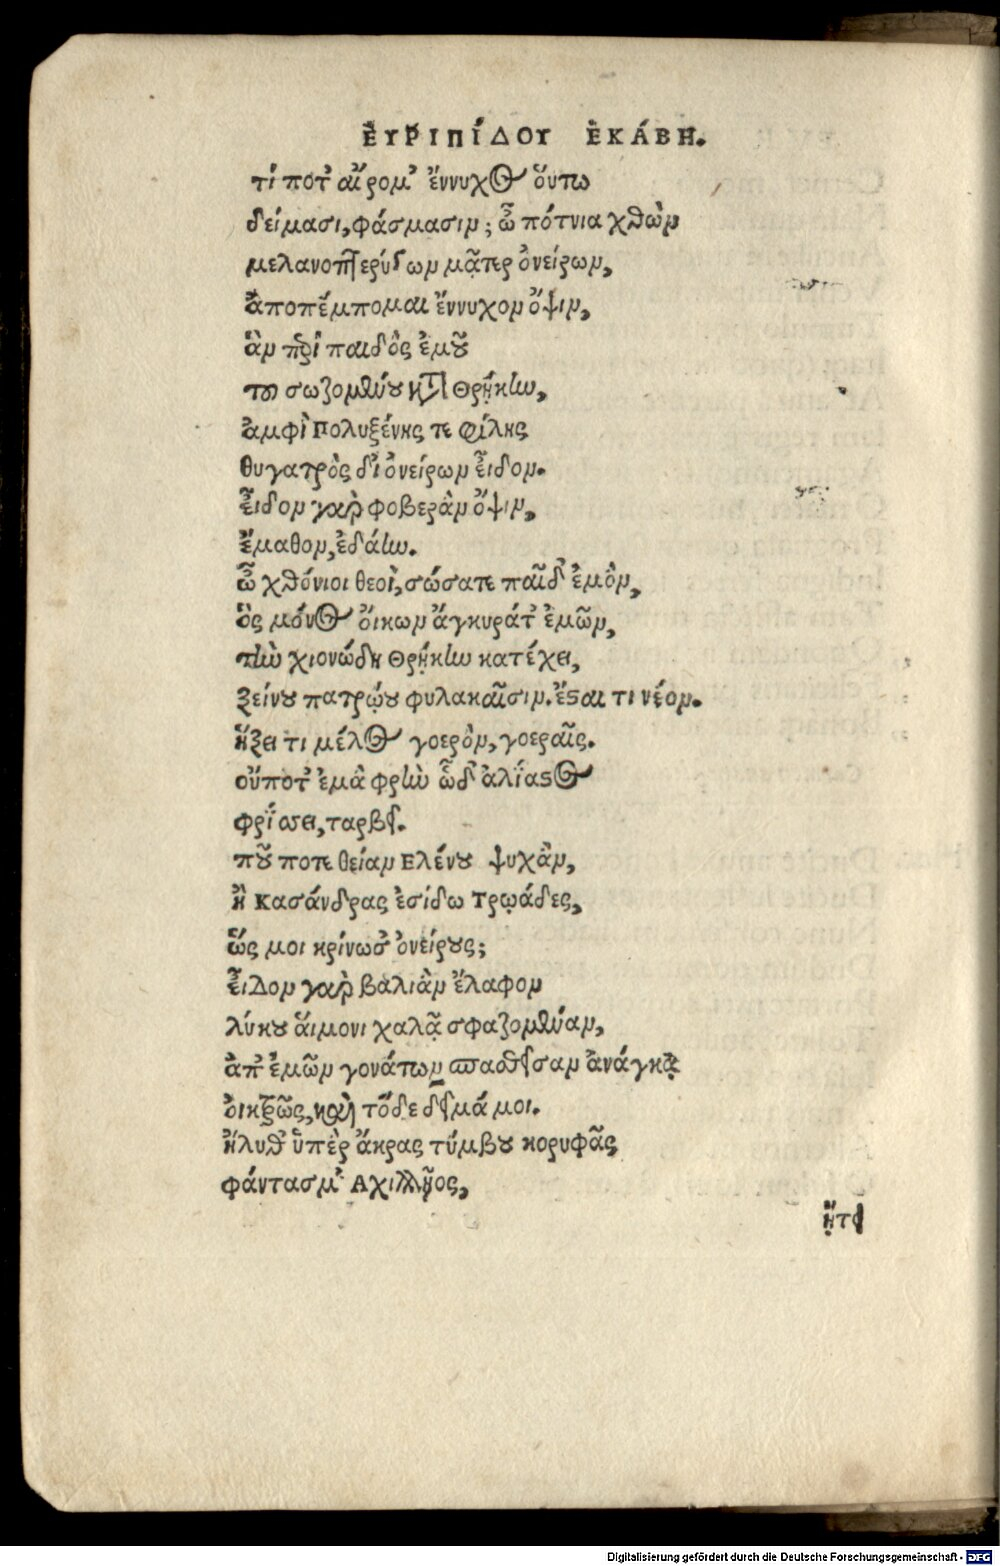 ἘΥΡΙΠΊΔΟΥ ἘΚΆΒΗ.
τί ποτ' αἴρομ' ἔννυχος οὕτω
δείμασι, φάσμασιν; ὦ πότνια χθὼν
μελανοπτερύγων μᾶτερ ὀνείρων,
ἀποπέμπομαι ἔννυχον ὄψιν,
ἃν περὶ παιδὸς ἐμοῦ
τοῦ σωζομένου κατὰ Θρῄκην,
ἀμφὶ Πολυξένης τε φίλης
θυγατρὸς δι' ὀνείρων εἶδον.
εἶδον γὰρ φοβερὰν ὄψιν,
ἔμαθον, ἐδάην.
ὦ χθόνιοι θεοὶ, σώσατε παῖδ' ἐμὸν,
ὃς μόνος οἴκων ἄγκυράτ' ἐμῶν,
τὴν χιονώδη Θρῄκην κατέχει,
ξείνου πατρῴου φυλακαῖσιν. ἔσται τι νέον.
ἥξει τι μέλος γοερὸν, γοεραῖς.
οὔποτ' ἐμὰ φρὴν ὧδ' ἀλίαστος
φρίσσει, ταρβεῖ.
ποῦ ποτε θείαν Ελένου ψυχὰν,
ἢ Κασάνδρας ἐσίδω Τρῳάδες,
ὥς μοι κρίνωσ' ὀνείρους;
εἶδον γὰρ βαλιὰν ἔλαφον
λύκου αἵμονι χαλᾷ σφαζομέναν,
ἀπ' ἐμῶν γονάτων σπασθεῖσαν ἀνάγκᾳ
οἰκτρῶς, καὶ τόδε δεῖμά μοι.
ἤλυθ' ὑπὲρ ἄκρας τύμβου κορυφᾶς
φάντασμ' Αχιλλῆος,
ᾔτει
Digitalisierung gefördert durch die Deutsche Forschungsgemeinschaft - DFG